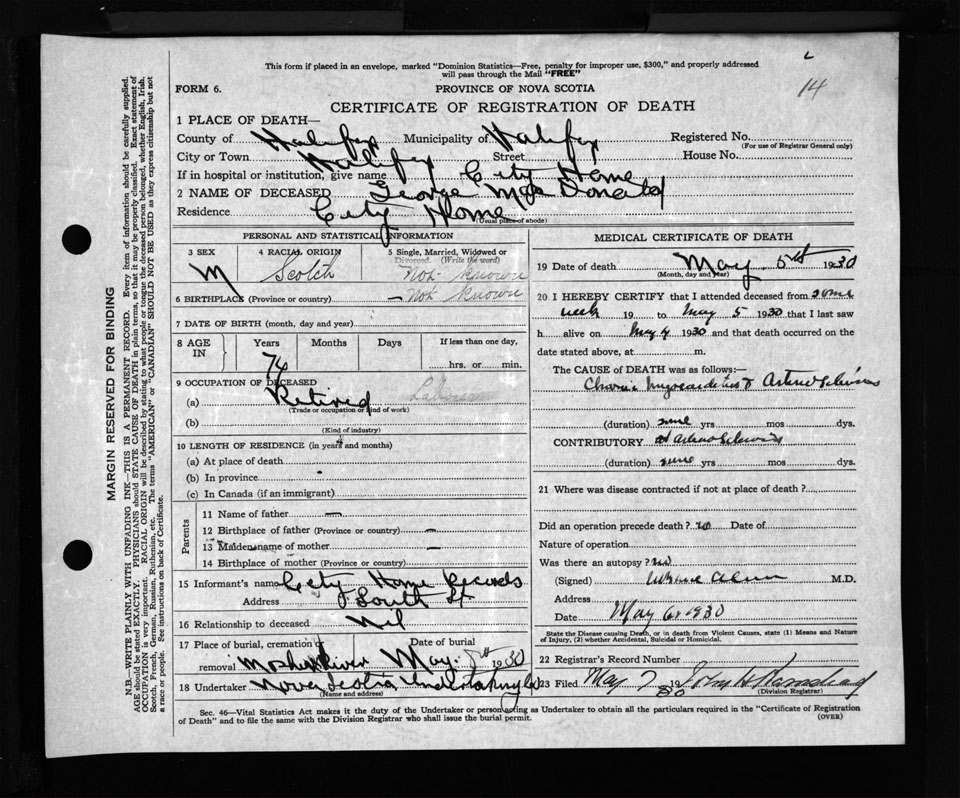 This form if placed in an envelope, marked "Dominion Statistics—Free, penalty for improper use, $300," and properly addressed
will pass through the Mail "FREE"
14
FORM 6.
PROVINCE OF NOVA SCOTIA
CERTIFICATE OF REGISTRATION OF DEATH
1 PLACE OF DEATH—
County of Halifax Municipality of Halifax Registered No.
(For use of Registrar General only)
City or Town Halifax Street House No.
If in hospital or institution, give name City Home
2 NAME OF DECEASED George MacDonald
Residence City Home
(Usual place of abode)
PERSONAL AND STATISTICAL INFORMATION
3 SEX 4 RACIAL ORIGIN 5 Single, Married, Widowed or
Divorced. (Write the word)
M Scotch Not known
6 BIRTHPLACE (Province or country) — Not known
7 DATE OF BIRTH (month, day and year)
8 AGE IN Years Months Days If less than one day,
74 hrs. or min.
9 OCCUPATION OF DECEASED
(a) Retired Labourer
(Trade or occupation or kind of work)
(b)
(Kind of industry)
10 LENGTH OF RESIDENCE (in years and months)
(a) At place of death
(b) In province
(c) In Canada (if an immigrant)
Parents
11 Name of father —
12 Birthplace of father (Province or country) —
13 Maiden name of mother —
14 Birthplace of mother (Province or country)
15 Informant's name City Home Records
Address South St
16 Relationship to deceased Nil
17 Place of burial, cremation or Date of burial
removal Mosher River May 1930
18 Undertaker Nova Scotia Undertaking Co
(Name and address)
MEDICAL CERTIFICATE OF DEATH
19 Date of death May 5th 1930
(Month, day and year)
20 I HEREBY CERTIFY that I attended deceased from some
week 19 to May 5 1930 that I last saw
h alive on May 4 1930 and that death occurred on the
date stated above, at m.
The CAUSE of DEATH was as follows:—
Chronic myocarditis & Arteriosclerosis
(duration) some yrs mos dys.
CONTRIBUTORY Arteriosclerosis
(duration) some yrs mos dys.
21 Where was disease contracted if not at place of death?
Did an operation precede death? no Date of
Nature of operation
Was there an autopsy? no
(Signed) M.D.
Address
Date May 6 1930
State the Disease causing Death, or in death from Violent Causes, state (1) Means and Nature
of Injury, (2) whether Accidental, Suicidal or Homicidal.
22 Registrar's Record Number
23 Filed May 7 1930 John H
(Division Registrar)
Sec. 46—Vital Statistics Act makes it the duty of the Undertaker or person acting as Undertaker to obtain all the particulars required in the "Certificate of Registration
of Death" and to file the same with the Division Registrar who shall issue the burial permit.
(OVER)
MARGIN RESERVED FOR BINDING
N.B.—WRITE PLAINLY WITH UNFADING INK—THIS IS A PERMANENT RECORD. Every item of information should be carefully supplied.
AGE should be stated EXACTLY. PHYSICIANS should STATE CAUSE OF DEATH in plain terms, so that it may be properly classified. Exact statement of
OCCUPATION is very important. RACIAL ORIGIN will be described by stating to what people or tongue the deceased person belonged, whether English, Irish,
Scotch, French, German, Russian, Ruthenian, etc. The terms "AMERICAN" or "CANADIAN" SHOULD NOT BE USED as they express citizenship but not
a race or people. See instructions on back of Certificate.